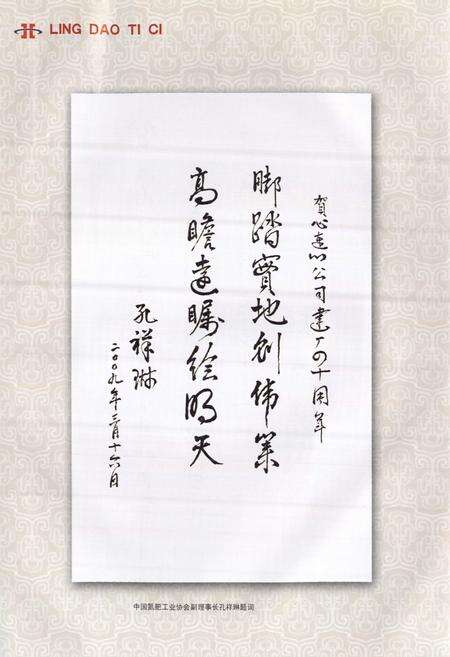 LING DAO TI CI
賀心連心公司建厂四十周年
脚踏實地创伟業
高瞻遠瞩绘明天
孔祥琳
二〇〇九年三月十六日
中国氮肥工业协会副理事长孔祥琳题词